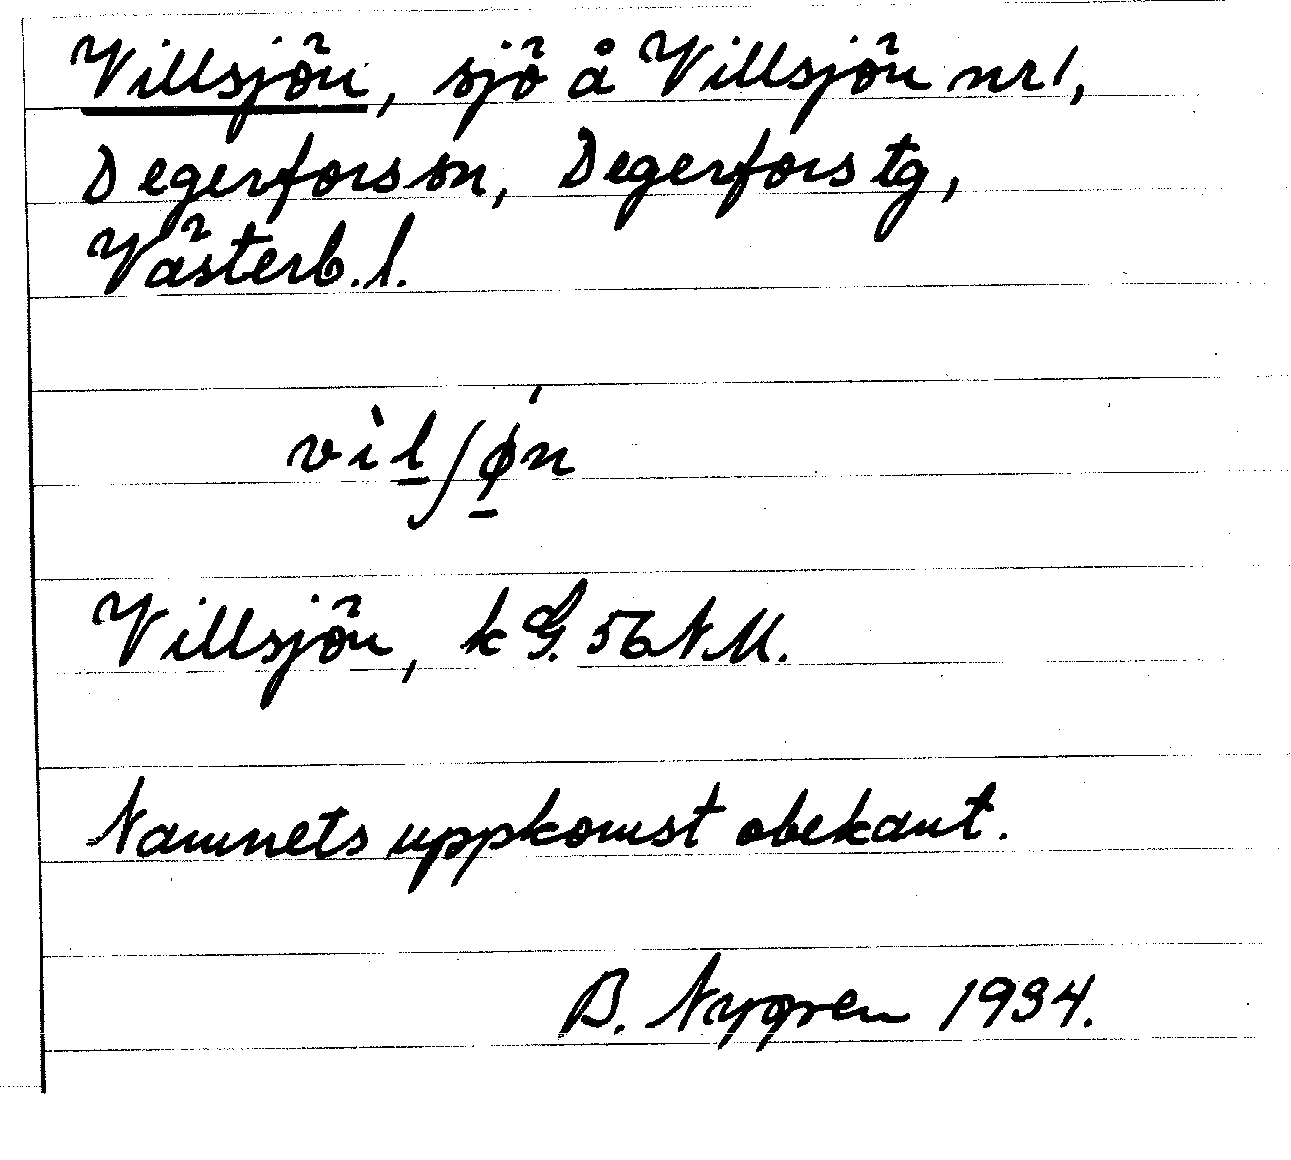 Villsjön, sjö å Villsjön nr 1,
Degerfors sn, Degerfors tg,
Västerb. l.
vìlʃø̀n
Villsjön, k G. 56 N M.
Namnets uppkomst obekant.
B. Nygren 1934.